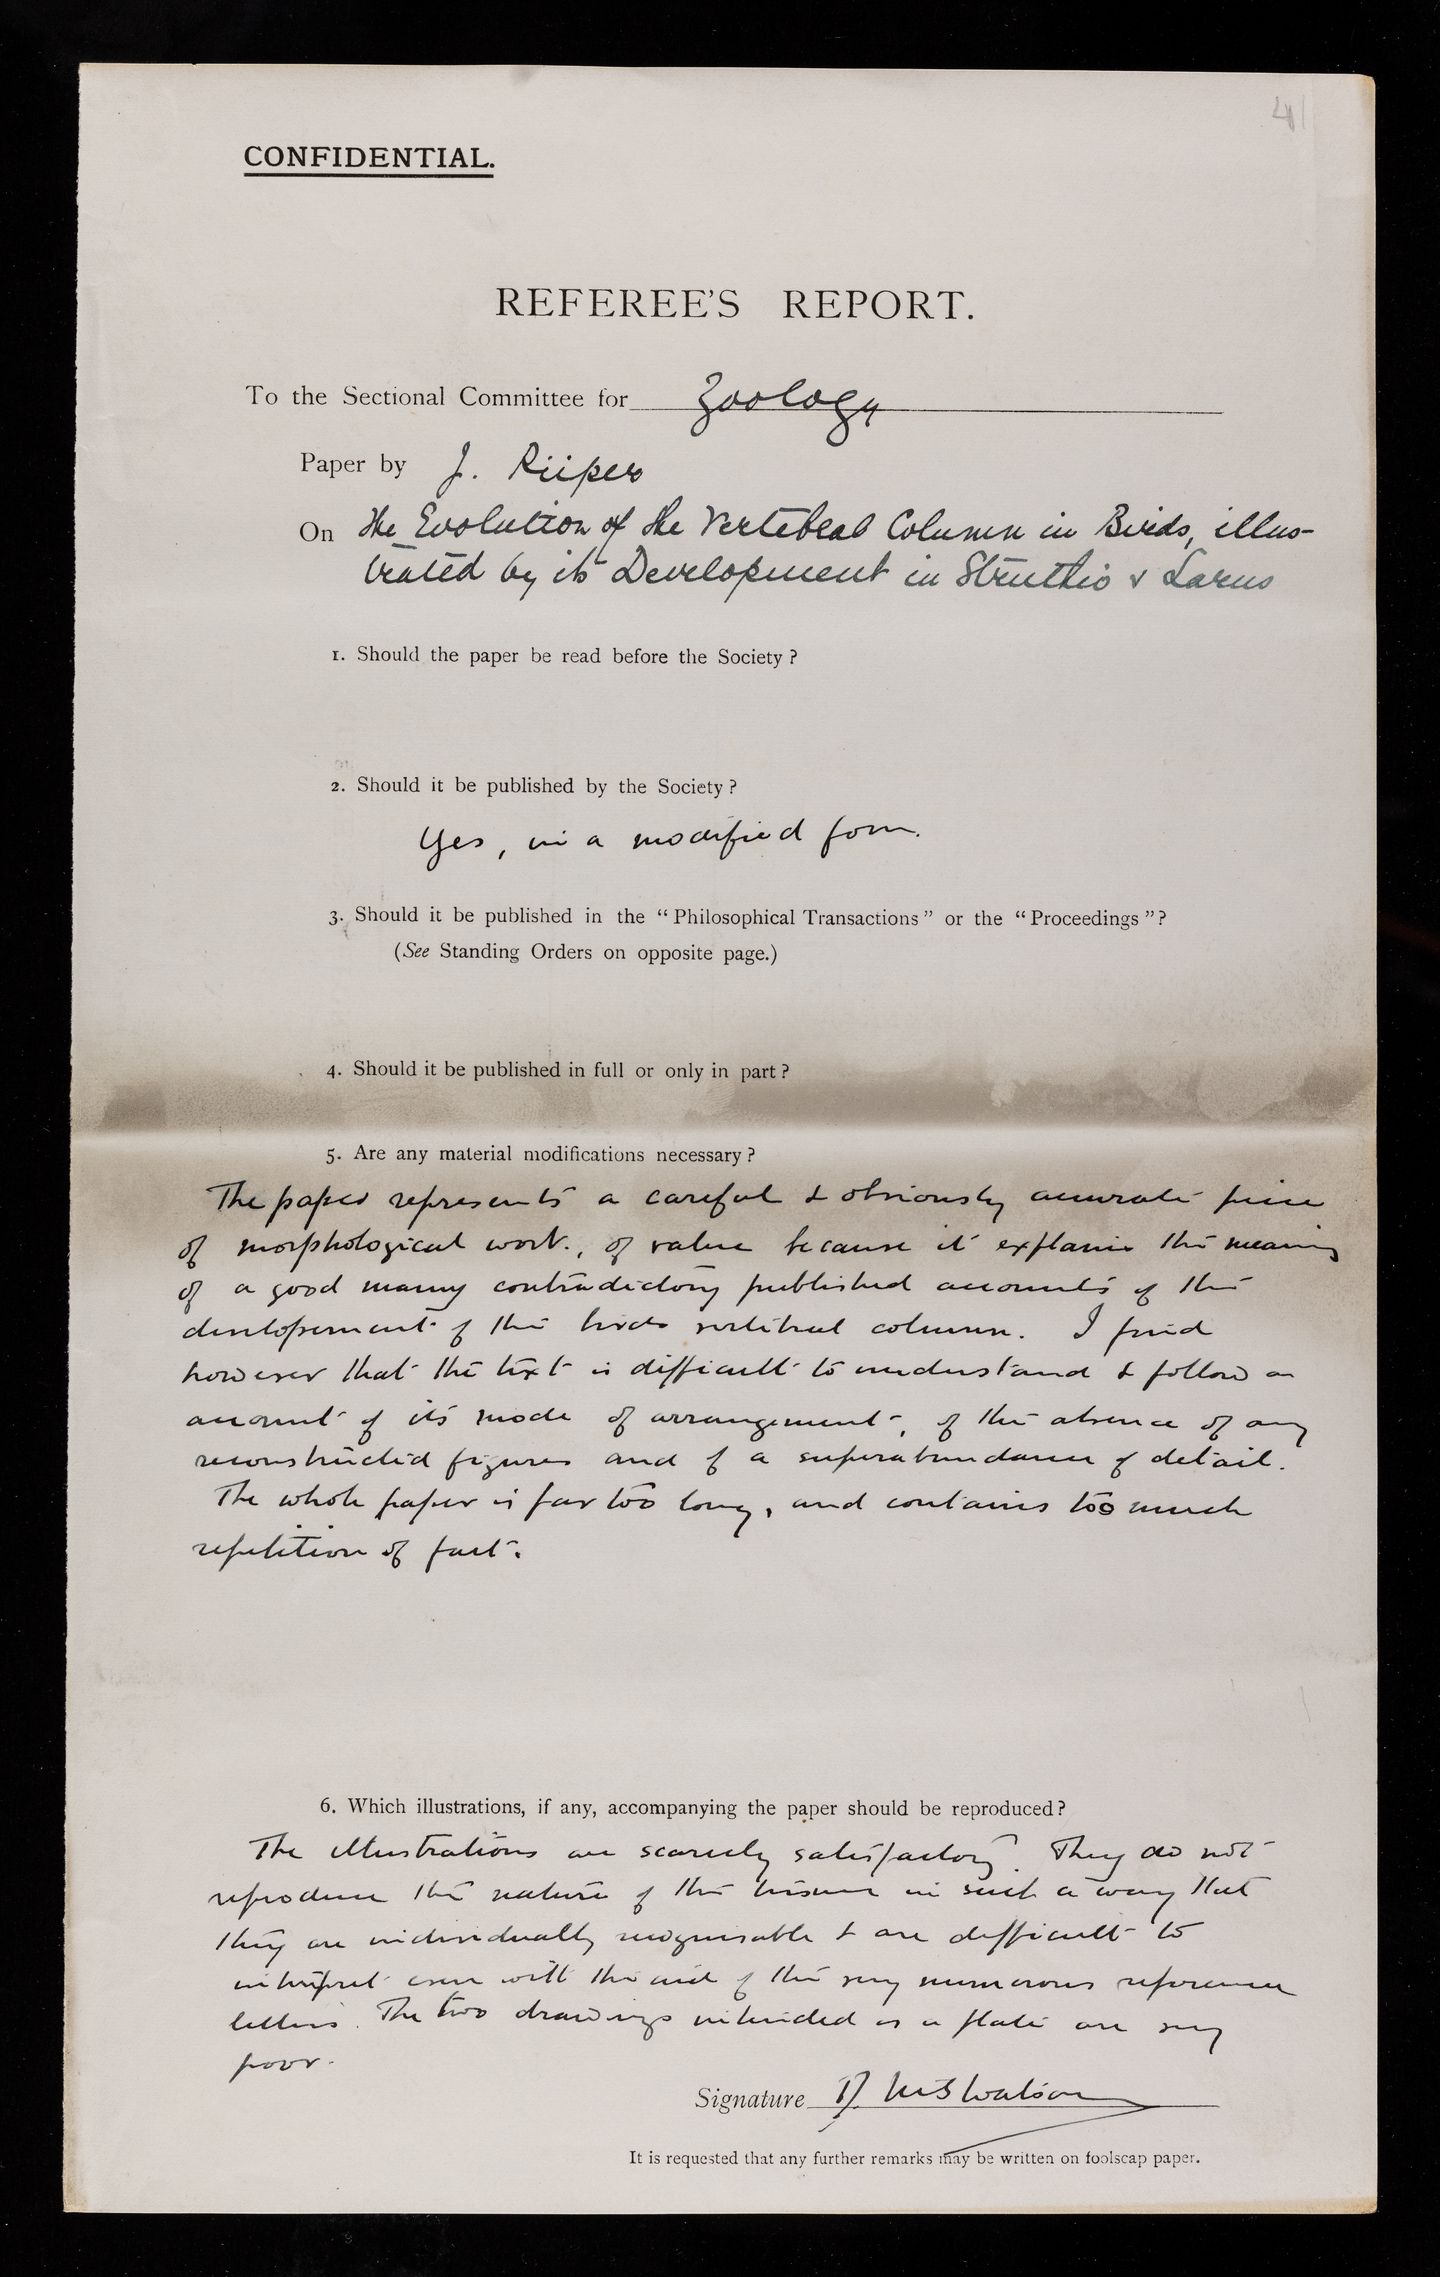 41
CONFIDENTIAL.
REFEREE'S REPORT.
To the Sectional Committee for Zoology
Paper by J. Piiper
On The Evolution of the Vertebral Column in Birds, illus-
trated by its Development in Struthio & Larus
1. Should the paper be read before the Society?
2. Should it be published by the Society?
Yes, in a modified form.
3. Should it be published in the "Philosophical Transactions" or the "Proceedings"?
(See Standing Orders on opposite page.)
4. Should it be published in full or only in part?
5. Are any material modifications necessary?
The paper represents a careful & obviously accurate piece
of morphological work., of value because it explains the meaning
of a good many contradictory published accounts of the
development of the birds vertebral column. I find
however that the text is difficult to understand & follow on
account of its mode of arrangement, of the absence of any
reconstructed figures and of a superabundance of detail.
The whole paper is far too long, and contains too much
repetition of fact.
6. Which illustrations, if any, accompanying the paper should be reproduced?
The illustrations are scarcely satisfactory. They do not
reproduce the nature of the tissues in such a way that
they are individually recognisable & are difficult to
interpret even with the aid of the very numerous reference
letters. The two drawings intended as a plate are very
poor.
Signature D. M S Watson
It is requested that any further remarks may be written on foolscap paper.